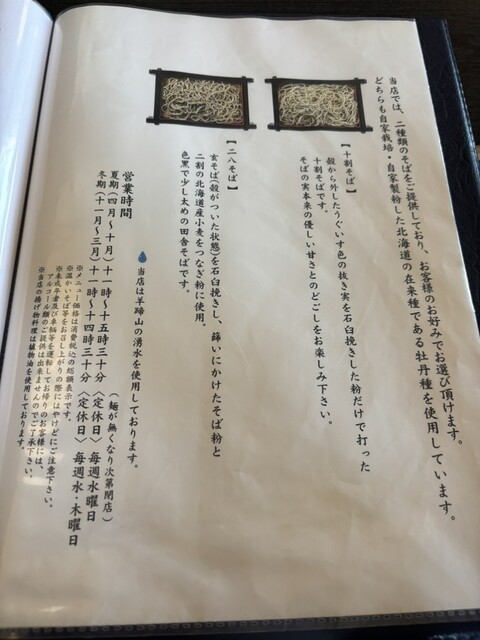 当店では、二種類のそばをご提供しており、お客様のお好みでお選び頂けます。
どちらも自家栽培・自家製粉した北海道の在来種である牡丹種を使用しています。
【十割そば】
殻から外したうぐいす色の抜き実を石臼挽きした粉だけで打った
十割そばです。
そばの実本来の優しい甘さとのどごしをお楽しみ下さい。
【二八そば】
玄そば(殻がついた状態)を石臼挽きし、篩いにかけたそば粉と
二割の北海道産小麦をつなぎ粉に使用。
色黒で少し太めの田舎そばです。
当店は羊蹄山の湧水を使用しております。
営業時間
(麺が無くなり次第閉店)
夏期(四月～十月)十一時～十五時三十分〈定休日〉毎週水曜日
冬期(十一月～三月)十一時～十四時三十分〈定休日〉毎週水・木曜日
※メニュー価格は消費税込の総額表示です。
※温かいそば等をお召し上がりの際にはやけどにご注意下さい。
※未成年者及び車輌等を運転してお帰りのお客様には、
アルコール類のご提供は出来ませんのでご了承下さい。
※当店の揚げ物料理は植物油を使用しております。